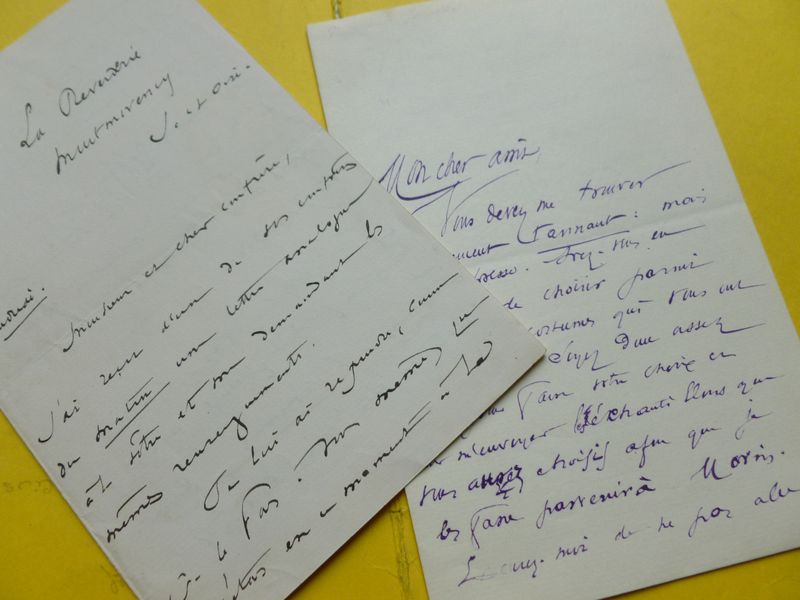 La
Montmorency
S. et Oise.
Monsieur et cher confrère,
J'ai reçu d'un de vos confrères
du matin une lettre analogue
à la vôtre et me demandant les
mêmes renseignements.
Je lui ai répondu, comme
je le fais
en ce moment à
Mon cher ami,
Vous devez me trouver
tannant : mais
en
de choisir parmi
costumes qui vous ont
Soyez donc assez
faire votre choix et
m'envoyer les échantillons que
vous avez choisis afin que je
les fasse parvenir à Morris.
Excusez-moi de ne pas